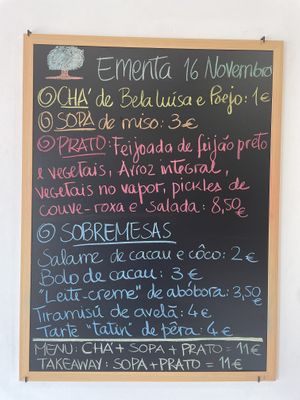 Ementa 16 Novembro
CHÁ de Bela luísa e Poejo: 1€
SOPA de miso: 3€
PRATO: Feijoada de feijão preto
e vegetais, Arroz integral,
vegetais no vapor, pickles de
couve-roxa e salada: 8,50€
SOBREMESAS
Salame de cacau e côco: 2€
Bolo de cacau: 3€
"Leite-creme" de abóbora: 3,50€
Tiramisú de avelã: 4€
Tarte "tatin" de pêra: 4€
MENU: CHÁ + SOPA + PRATO = 11€
TAKEAWAY: SOPA + PRATO = 11€